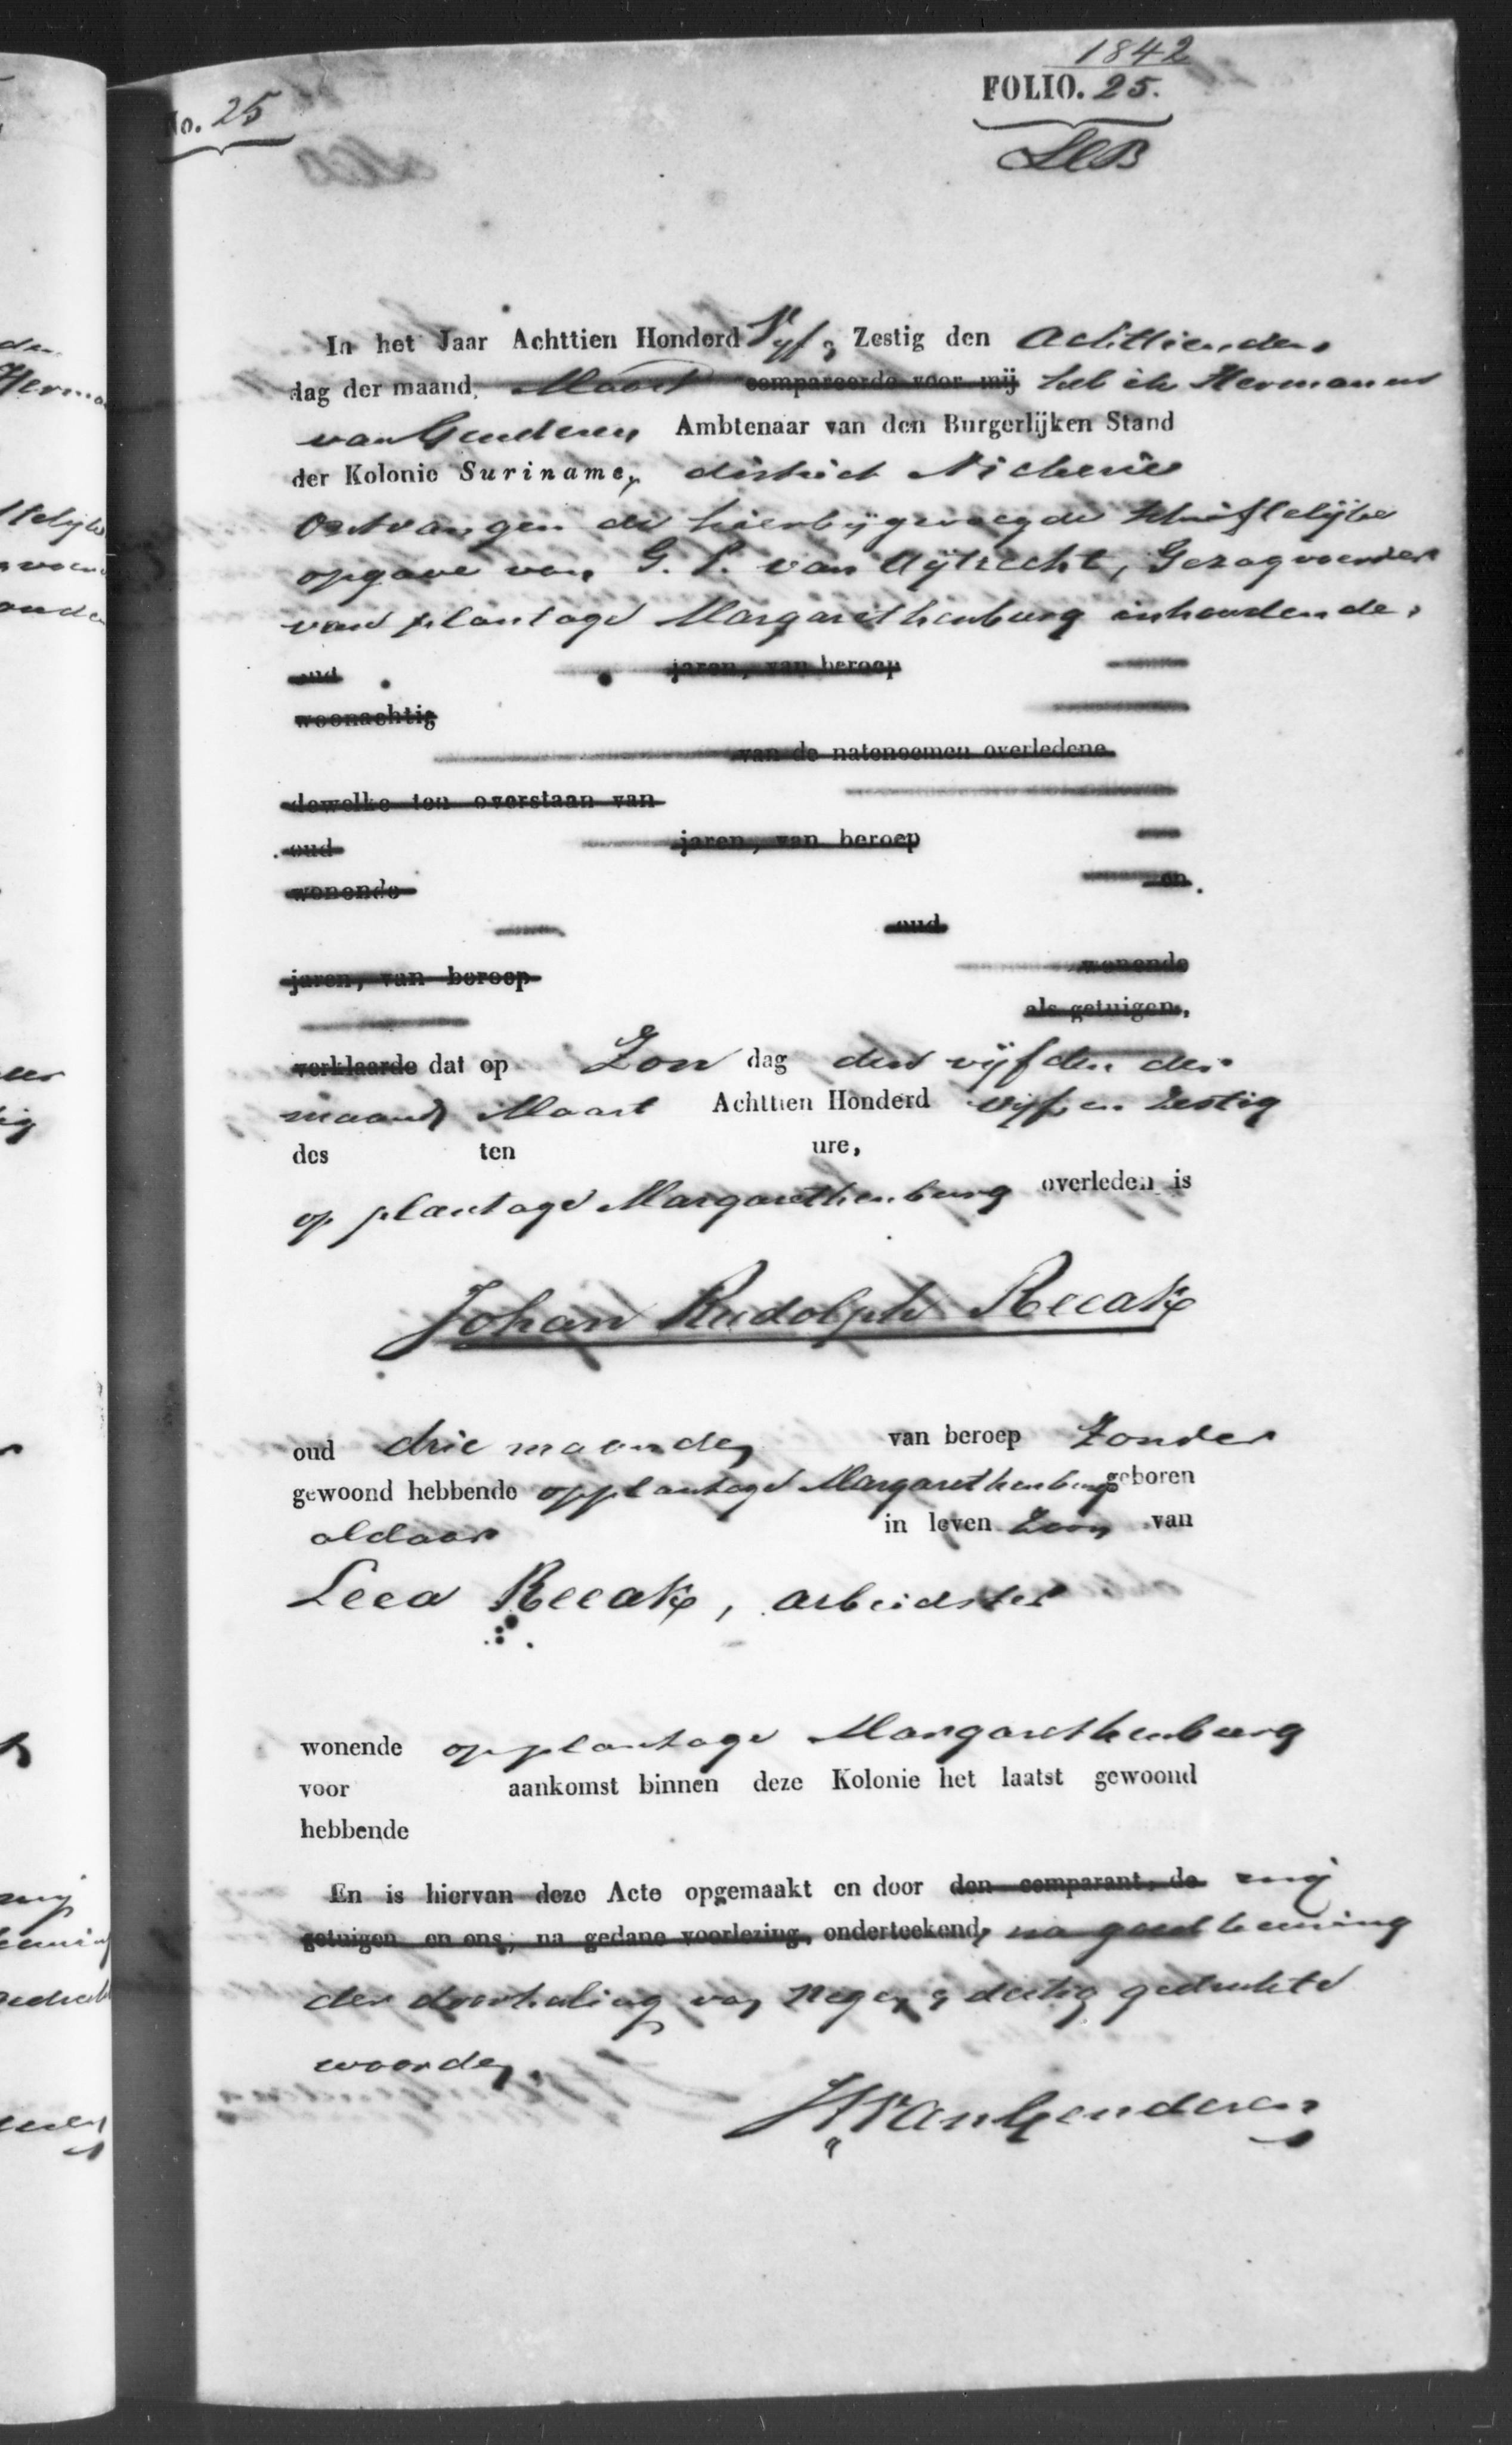 1842
No. 25
FOLIO. 25.
In het Jaar Achttien Honderd Vyf en Zestig den Achttienden
dag der maand Maart compareerde voor mij heb ik Hermanus
van Genderen Ambtenaar van den Burgerlijken Stand
der Kolonie Suriname, district Nickerie
ontvangen de hierbijgevoegde schriftelijke
opgave van G. P. van Uÿtrecht, Gezagvoerder
van plantage Margarethenburg inhoudende,
oud jaren, van beroep
woonachtig
van de natenoemen overledene
dewelke ten overstaan van
oud jaren, van beroep
wonende en
oud
jaren, van beroep wonende
als getuigen,
verklaarde dat op Zon dag den vijfden der
maand Maart Achttien Honderd vijf en Zestig
des ten ure,
op plantage Margarethenburg overleden is
Johan Rudolph Reeak
oud drie maanden van beroep Zonder
gewoond hebbende op plantage Margarethenburg geboren
aldaar in leven Zoon van
Leea Reeak, arbeidster
wonende op plantage Margarethenburg
voor aankomst binnen deze Kolonie het laatst gewoond
hebbende
En is hiervan deze Acte opgemaakt en door den comparant, de mij
getuigen en ons, na gedane voorlezing, onderteekend, na goedkeuring
der doorhaling van negen en dertig gedrukte
woorden.
HvanGenderen